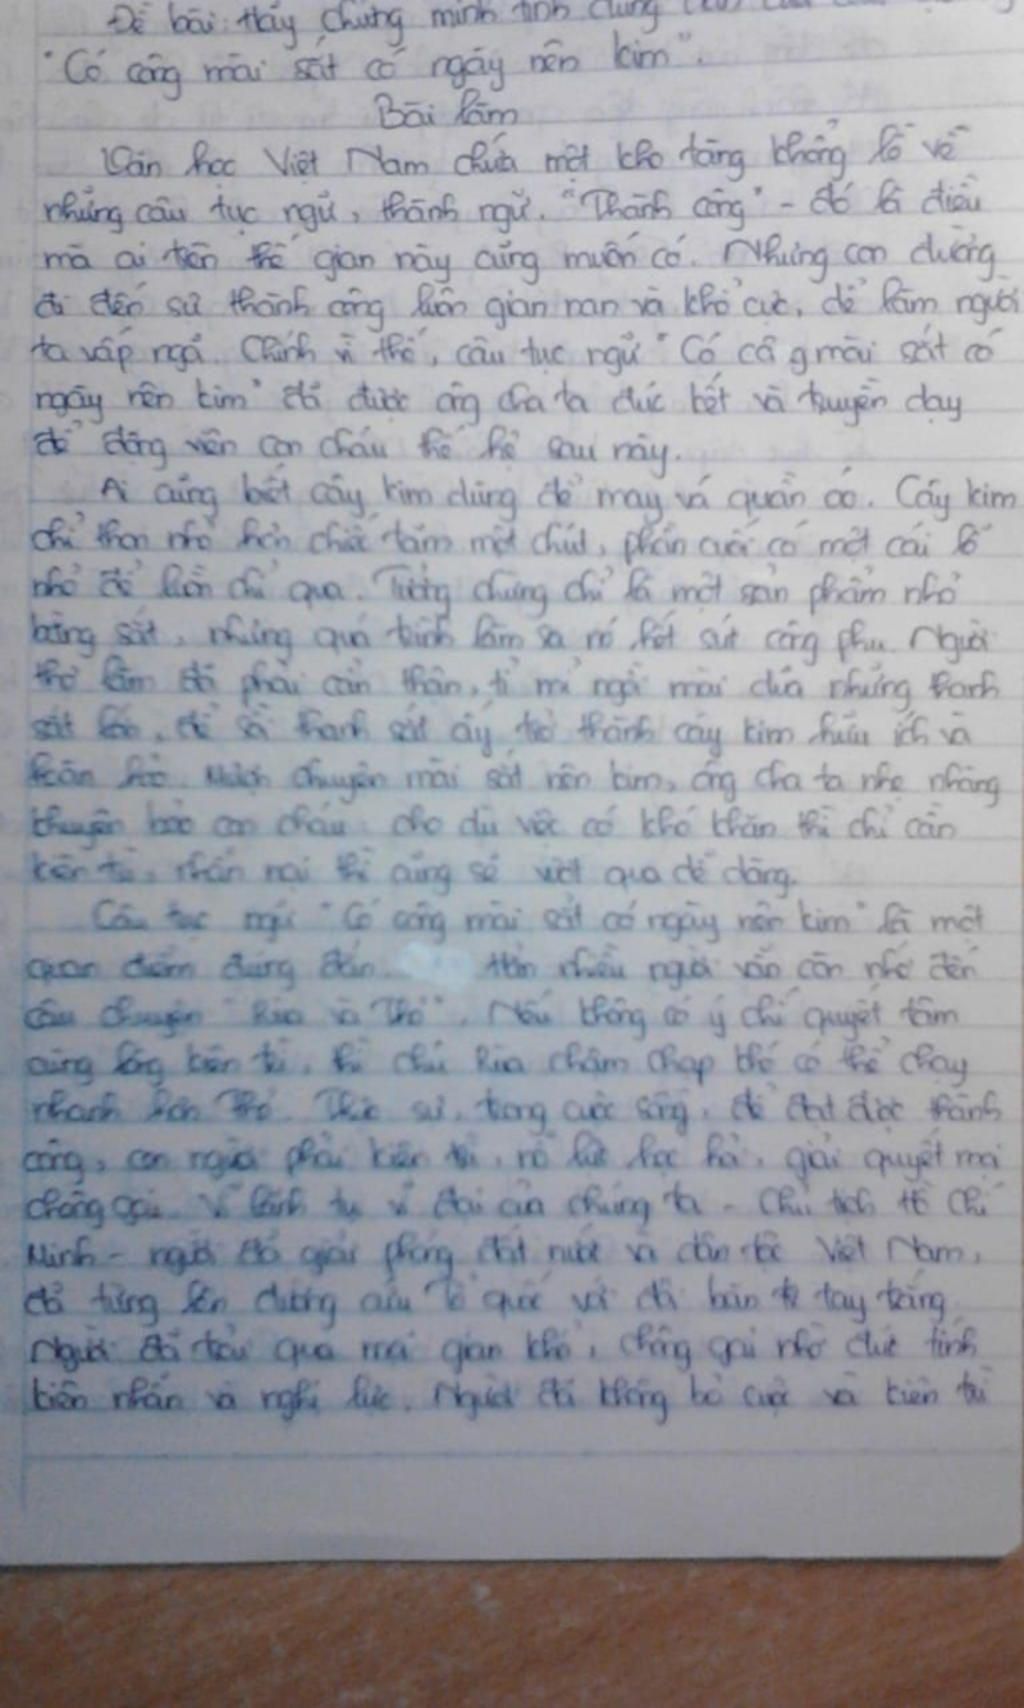 Đề bài: Hãy chứng minh tính đúng
"Có công mài sắt có ngày nên kim".
Bài làm
Văn học Việt Nam chứa một kho tàng khổng lồ về
những câu tục ngữ, thành ngữ. "Thành công" - đó là điều
mà ai trên thế gian này cũng muốn có. Nhưng con đường
đi đến sự thành công luôn gian nan và khổ cực, dễ làm người
ta vấp ngã. Chính vì thế, câu tục ngữ "Có cô g mài sắt có
ngày nên kim" đã được ông cha ta đúc kết và truyền dạy
để động viên con cháu thế hệ sau này.
Ai cũng biết cây kim dùng để may vá quần áo. Cây kim
chỉ thon nhỏ hơn chiếc tăm một chút, phần cuối có một cái lỗ
nhỏ để luồn chỉ qua. Tưởng chừng chỉ là một sản phẩm nhỏ
bằng sắt, nhưng quá trình làm ra nó hết sức công phu. Người
thợ làm đã phải cẩn thận, tỉ mỉ ngồi mài dũa những thanh
sắt lớn, để rồi thanh sắt ấy trở thành cây kim hữu ích và
hoàn hảo. Mượn chuyện mài sắt nên kim, ông cha ta nhẹ nhàng
khuyên bảo con cháu: cho dù việc có khó khăn thì chỉ cần
kiên trì, nhẫn nại thì cũng sẽ vượt qua dễ dàng.
Câu tục ngữ "Có công mài sắt có ngày nên kim" là một
quan điểm đúng đắn. Hẳn nhiều người vẫn còn nhớ đến
câu chuyện "Rùa và Thỏ". Nếu không có ý chí quyết tâm
cùng lòng kiên trì, thì chú Rùa chậm chạp khó có thể chạy
nhanh hơn Thỏ. Thực sự, trong cuộc sống, để đạt được thành
công, con người phải kiên trì, nỗ lực học hỏi, giải quyết mọi
chông gai. Vị lãnh tụ vĩ đại của chúng ta - Chủ tịch Hồ Chí
Minh - người đã giải phóng đất nước và dân tộc Việt Nam,
đã từng lên đường cứu Tổ quốc với đôi bàn tay trắng.
Người đã trải qua mọi gian khổ, chông gai nhờ đức tính
kiên nhẫn và nghị lực. Người đã không bỏ cuộc và kiên trì